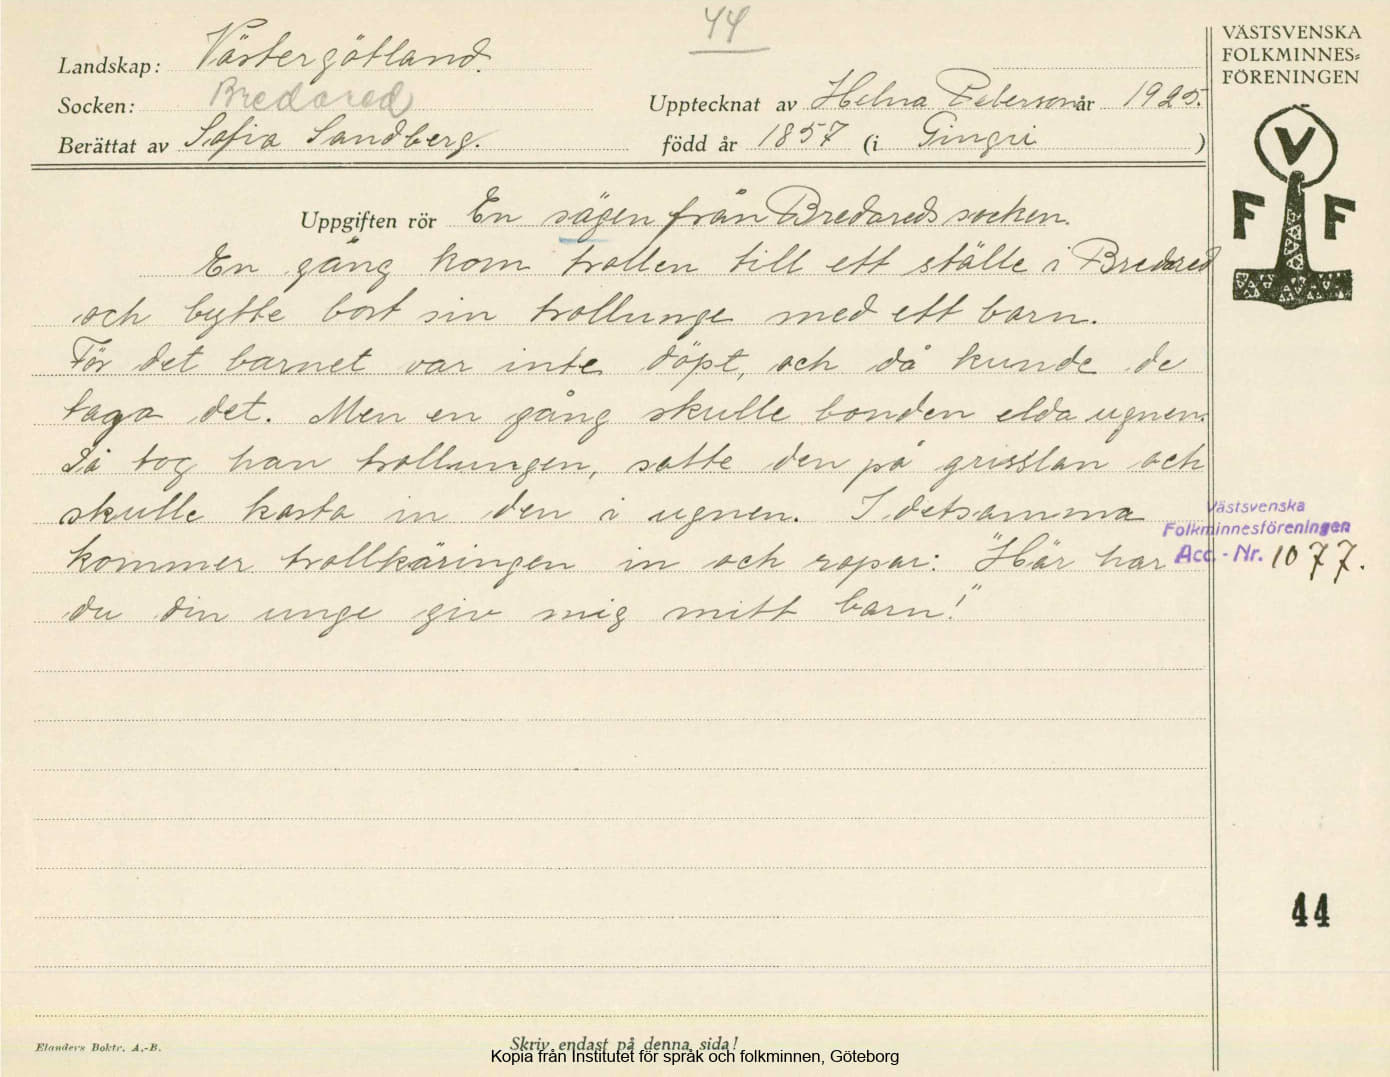 44
VÄSTSVENSKA
FOLKMINNES=
FÖRENINGEN
Landskap: Västergötland.
Socken: Bredared
Upptecknat av Helna Peterson år 1925.
Berättat av Sofia Sandberg.
född år 1857 (i Gingri )
V
F F
Uppgiften rör En sägen från Bredareds socken.
En gång kom trollen till ett ställe i Bredared
och bytte bort sin trollunge med ett barn.
För det barnet var inte döpt, och då kunde de
taga det. Men en gång skulle bonden elda ugnen.
Så tog han trollungen, satte den på grisslan och
skulle kasta in den i ugnen. I detsamma
kommer trollkäringen in och ropar: "Här har
du din unge giv mig mitt barn!"
Västsvenska
Folkminnesföreningen
Acc.-Nr. 1077.
44
Elanders Boktr. A.-B.
Skriv endast på denna sida!
Kopia från Institutet för språk och folkminnen, Göteborg